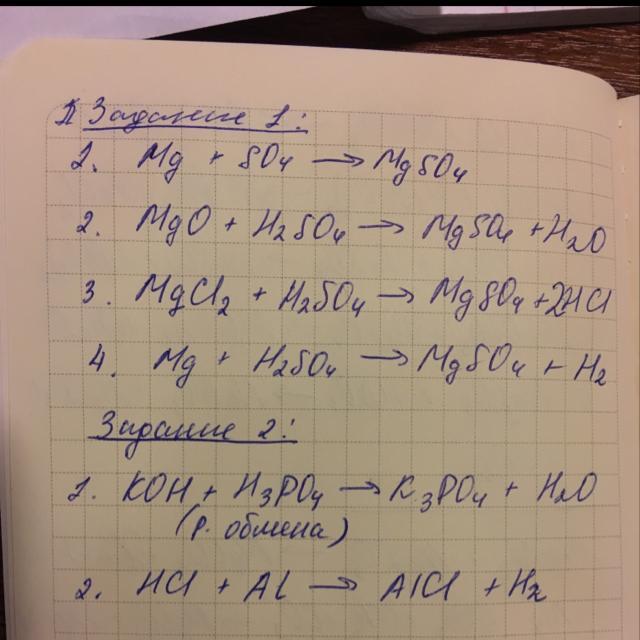 Задание 1:
1. Mg + SO₄ → MgSO₄
2. MgO + H₂SO₄ → MgSO₄ + H₂O
3. MgCl₂ + H₂SO₄ → MgSO₄ + 2HCl
4. Mg + H₂SO₄ → MgSO₄ + H₂
Задание 2:
1. KOH + H₃PO₄ → K₃PO₄ + H₂O
(р. обмена)
2. HCl + Al → AlCl + H₂